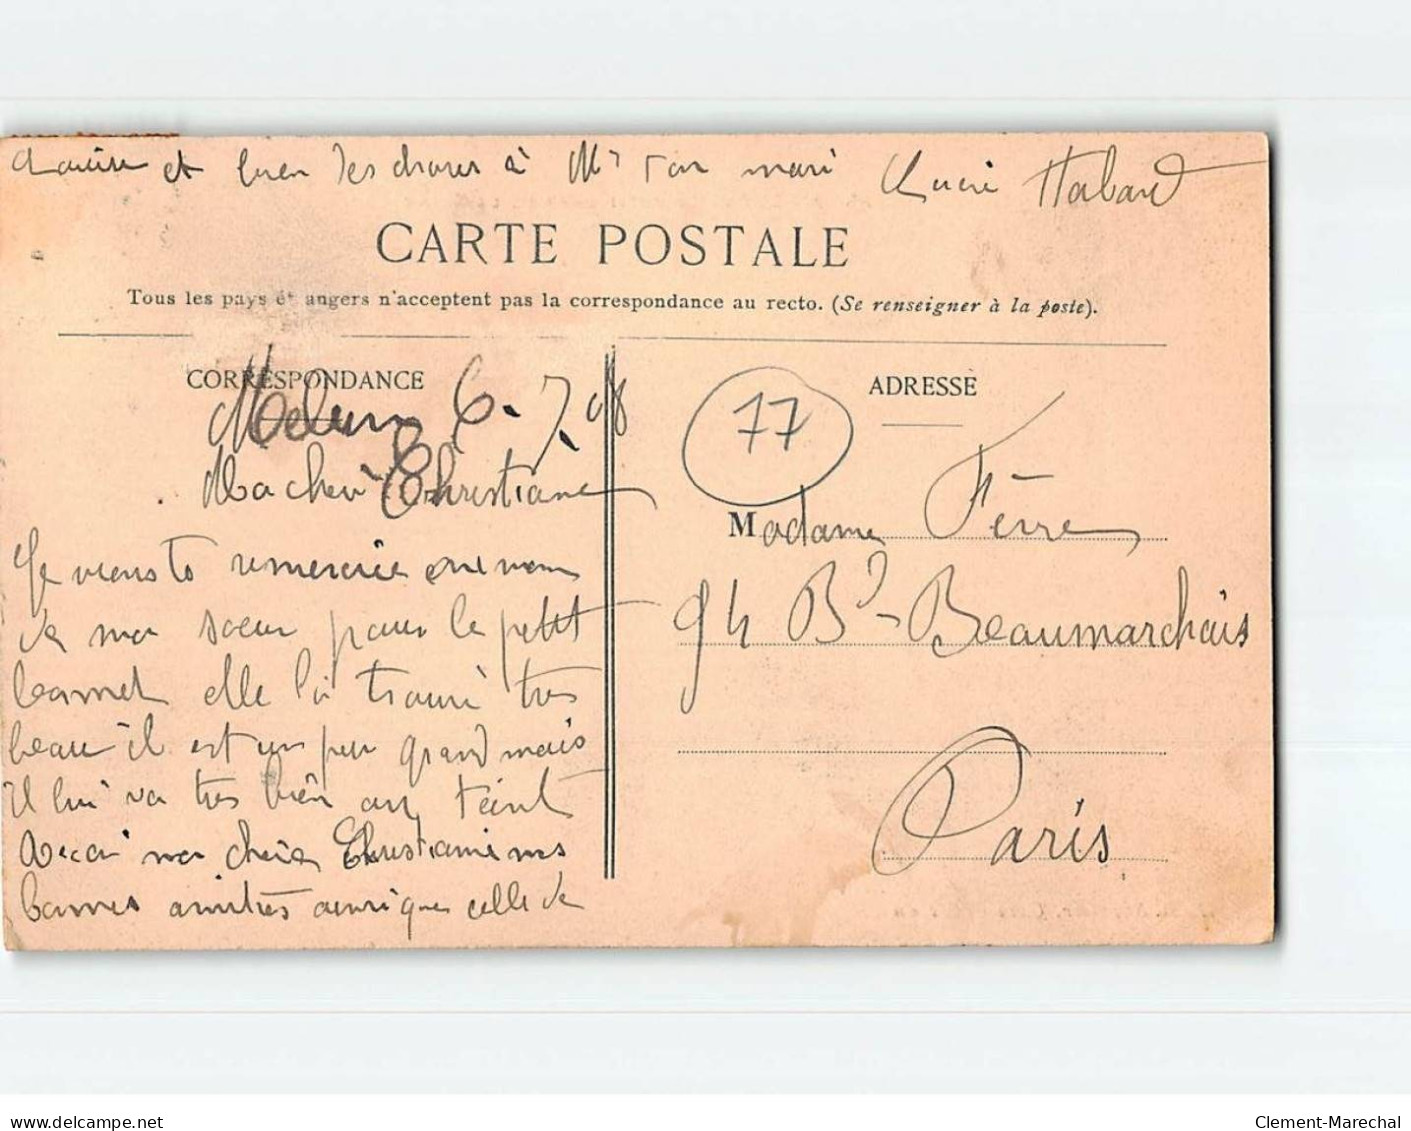 Louise et bien des choses à Mr ton mari Lucie
CARTE POSTALE
Tous les pays ét angers n'acceptent pas la correspondance au recto. (Se renseigner à la poste).
CORRESPONDANCE
Melun 6-7-08
Ma cher Christiane
Je viens te remercie
de ma soeur pour le petit
bonnet elle l'a trouvé très
beau il est un peu grand mais
il lui va très bien au teint
Recoi ma chère Christiane mes
bonnes amitiés ainsi que celle de
77
ADRESSE
Madame Ferre
94 Bd Beaumarchais
Paris
delcampe.net
Clement-Marechal